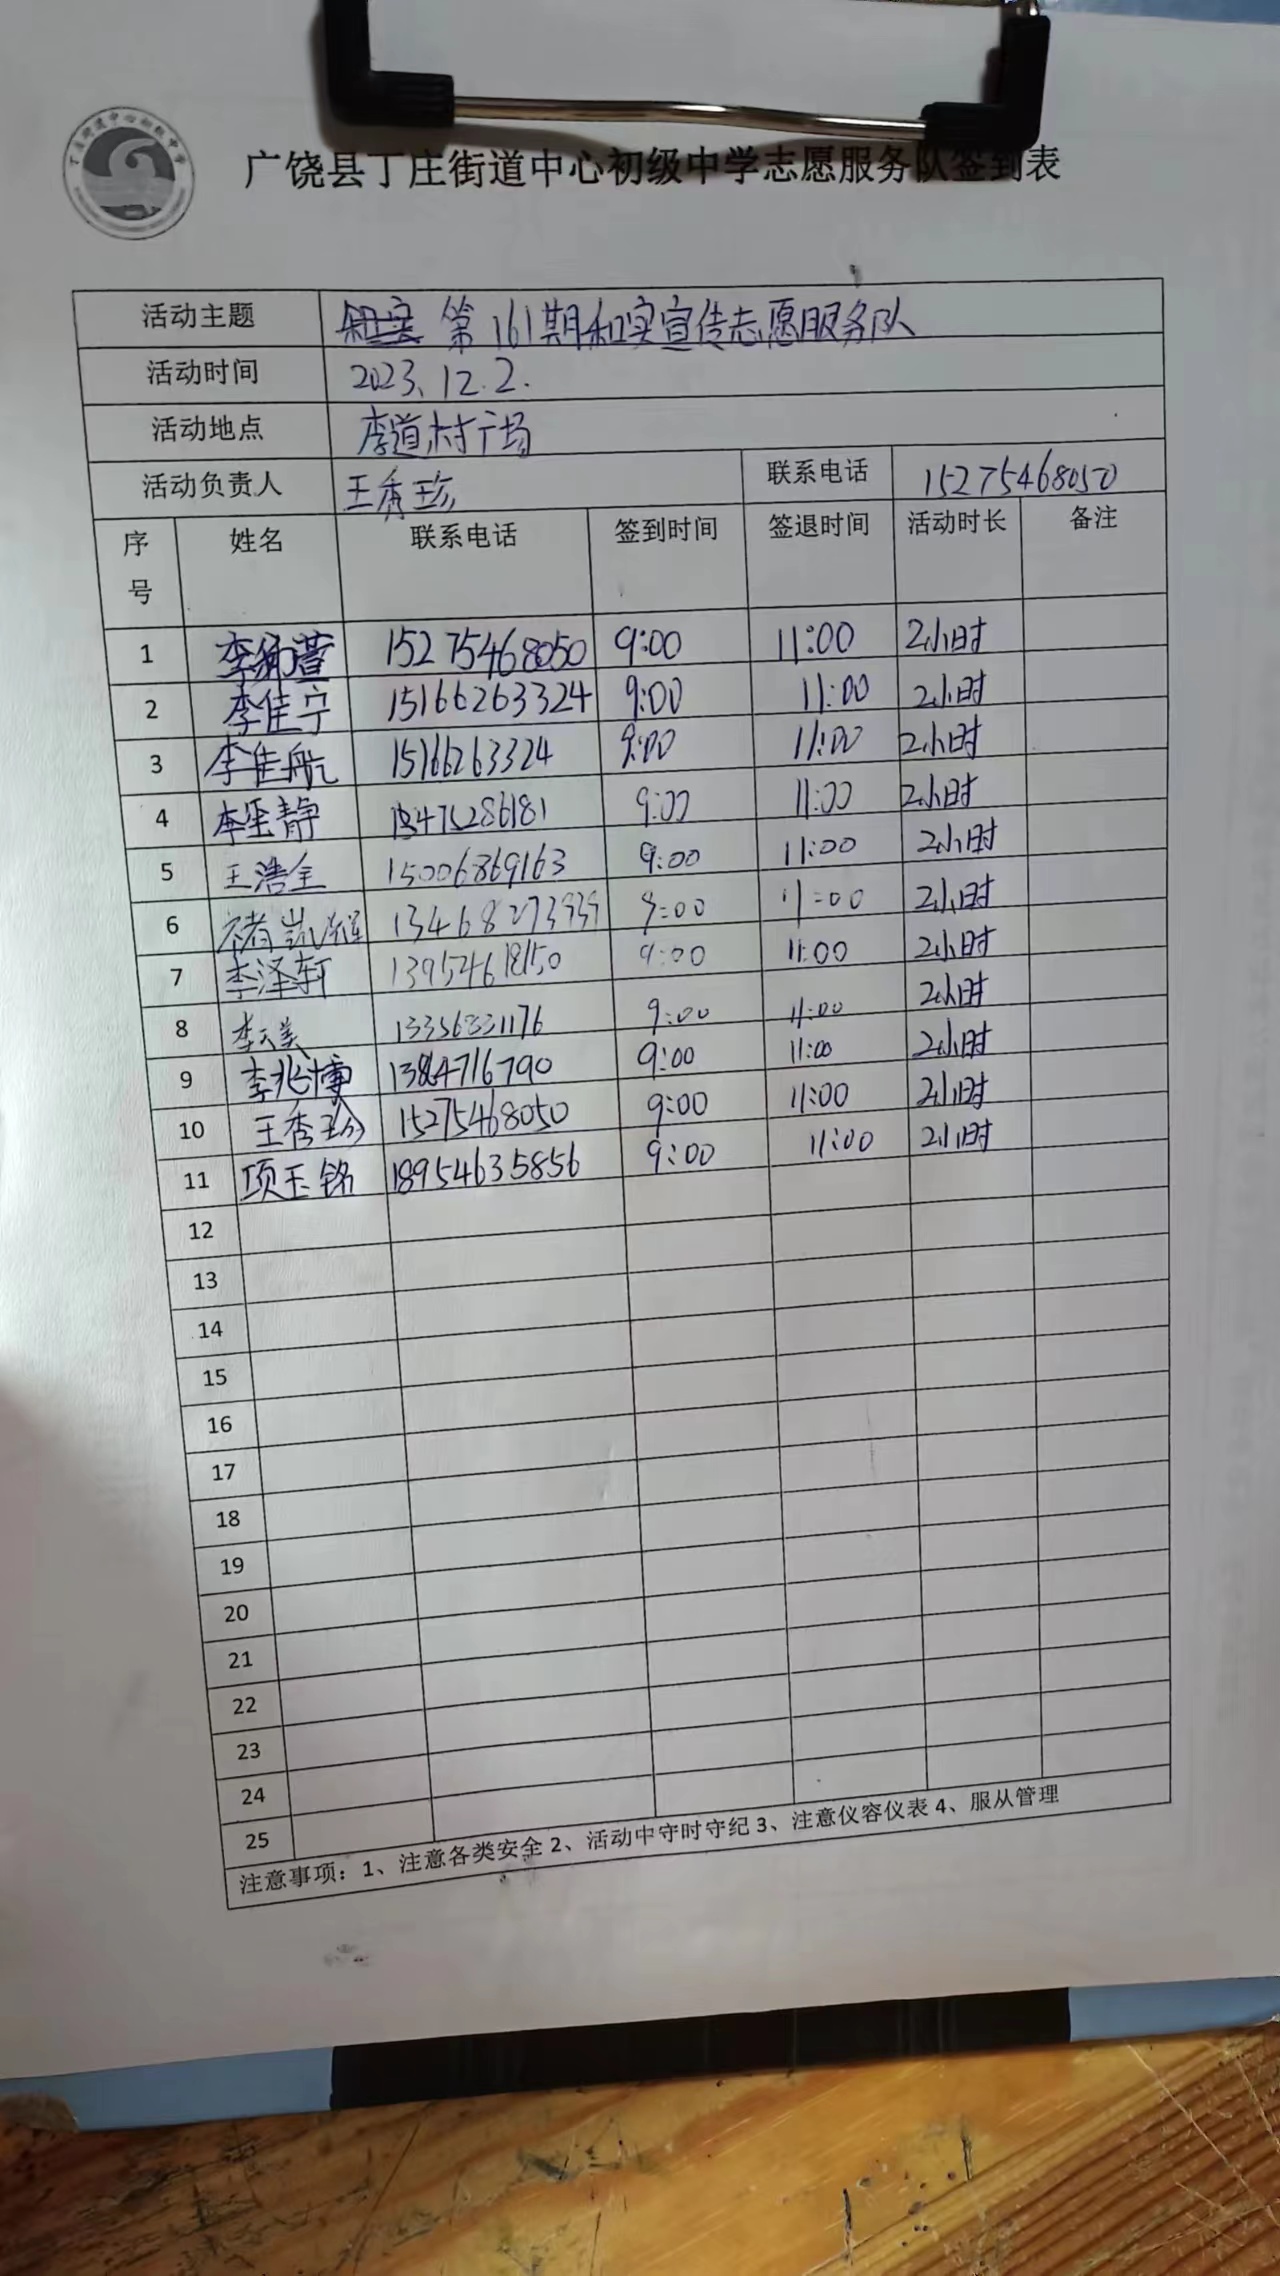 丁庄街道中心初级中学
广饶县丁庄街道中心初级中学志愿服务队签到表
活动主题 第161期和实宣传志愿服务队
活动时间 2023.12.2.
活动地点 李道村广场
活动负责人 王秀珍 联系电话 15275468050
序号 姓名 联系电话 签到时间 签退时间 活动时长 备注
1 15275468050 9:00 11:00 2小时
2 李佳宁 15166263324 9:00 11:00 2小时
3 李佳航 15166263324 9:00 11:00 2小时
4 9:00 11:00 2小时
5 王浩全 15006869163 9:00 11:00 2小时
6 9:00 11:00 2小时
7 李泽轩 9:00 11:00 2小时
8 9:00 11:00 2小时
9 李兆博 9:00 11:00 2小时
10 王秀珍 15275468050 9:00 11:00 2小时
11 项玉铭 18954635856 9:00 11:00 2小时
12
13
14
15
16
17
18
19
20
21
22
23
24
25
注意事项：1、注意各类安全 2、活动中守时守纪 3、注意仪容仪表 4、服从管理